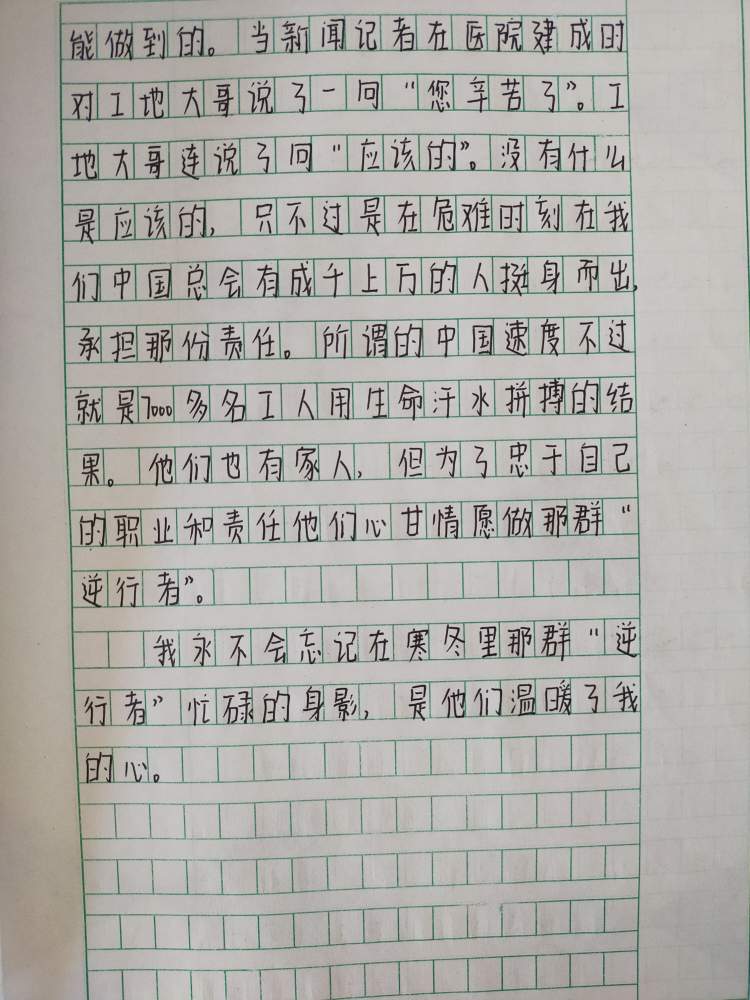 能做到的。当新闻记者在医院建成时
对工地大哥说了一问“您辛苦了”。工
地大哥连说了问“应该的”。没有什么
是应该的，只不过是在危难时刻在我
们中国总会有成千上万的人挺身而出，
承担那份责任。所谓的中国速度不过
就是7000多名工人用生命汗水拼搏的结
果。他们也有家人，但为了忠于自己
的职业和责任他们心甘情愿做那群“
逆行者”。
我永不会忘记在寒冬里那群“逆
行者”忙碌的身影，是他们温暖了我
的心。